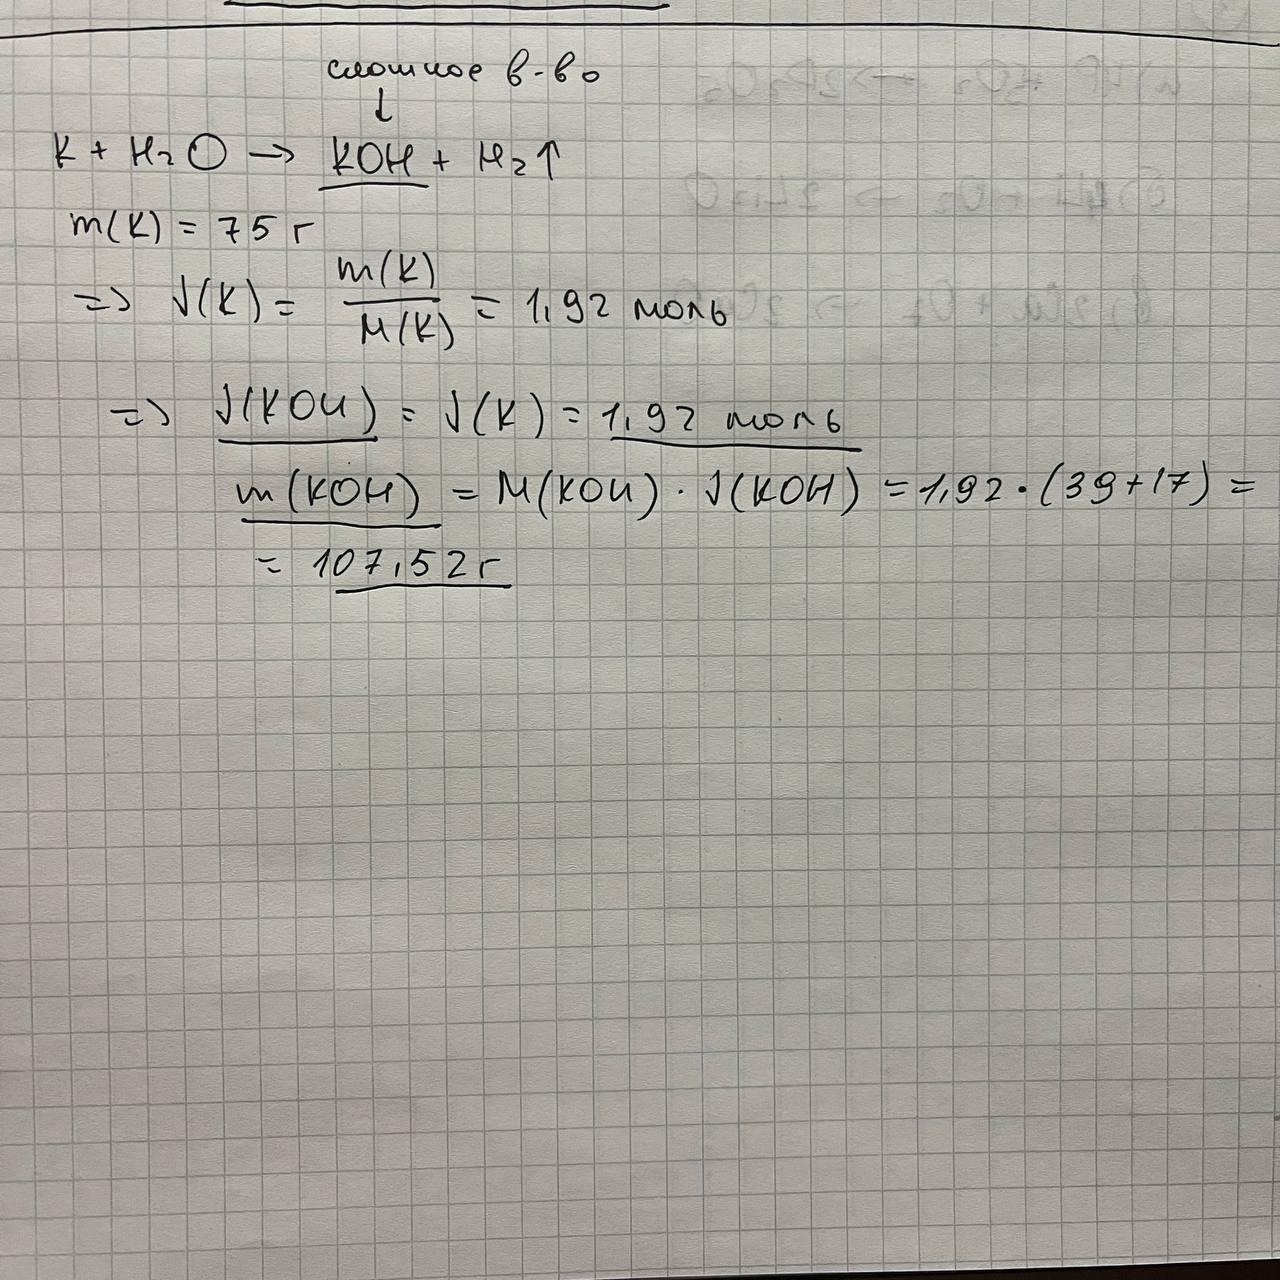 сложное в-во
↓
K + H₂O → KOH + H₂↑
m(K) = 75 г
=> ν(K) = m(K)/M(K) = 1,92 моль
=> ν(KOH) = ν(K) = 1,92 моль
m(KOH) = M(KOH) · ν(KOH) = 1,92 · (39+17) =
= 107,52 г